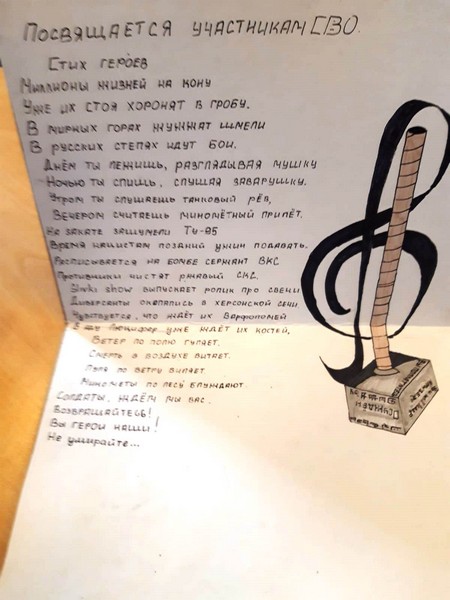 Посвящается участникам СВО.
Стих героев
Миллионы жизней на кону
Уже их стоя хоронят в гробу.
В мирных горах жужжат шмели
В русских степях идут бои.
Днём ты лежишь, разглядывая мушку
Ночью ты спишь, слушая заварушку.
Утром ты слушаешь танковый рёв,
Вечером считаешь миномётный прилёт.
На закате зашумели Ту-95
Время нацистам поздний ужин подавать.
Расписывается на бомбе сержант ВКС
Противники чистят ржавый СКС.
Slivki show выпускает ролик про свечи
Диверсанты окопались в Херсонской сечи
Чувствуется, что ждёт их Варфоломей
В аду Люцифер уже ждёт их костей.
Ветер по полю гуляет.
Смерть в воздухе витает.
Пуля по ветру виляет.
Миномёты по лесу блуждают.
Солдаты, ждём мы вас.
Возвращайтесь!
Вы герои наши!
Не умирайте...